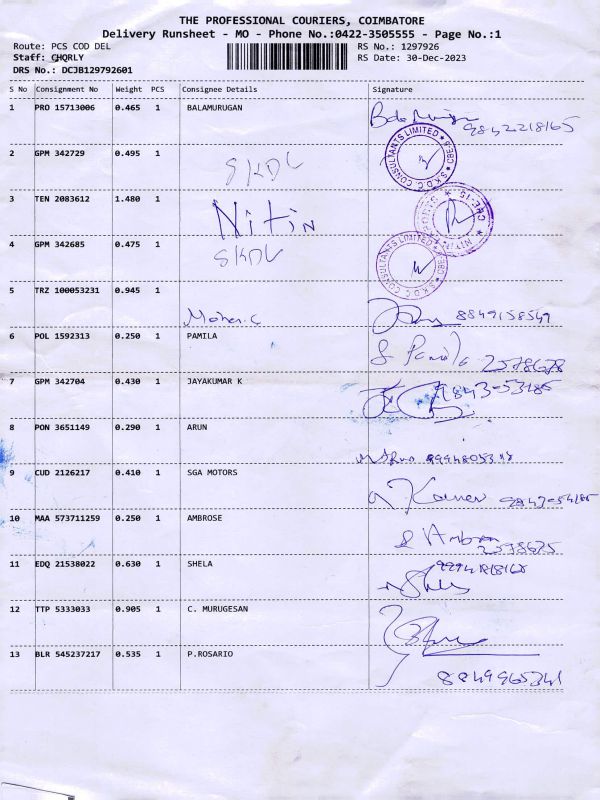 THE PROFESSIONAL COURIERS, COIMBATORE
Delivery Runsheet - MO - Phone No.:0422-3505555 - Page No.:1
Route: PCS COD DEL RS No.: 1297926
Staff: CHQRLY RS Date: 30-Dec-2023
DRS No.: DCJB129792601
S No Consignment No Weight PCS Consignee Details Signature
1 PRO 15713006 0.465 1 BALAMURUGAN
9842218165
2 GPM 342729 0.495 1 SKDC
S.K.D.C. CONSULTANTS LIMITED CBE-6
3 TEN 2083612 1.480 1 Nitin
4 GPM 342685 0.475 1 SKDC
S.K.D.C. CONSULTANTS LIMITED CBE-6
5 TRZ 100053231 0.945 1
8849158549
6 POL 1592313 0.250 1 PAMILA
Pamila 2578678
7 GPM 342704 0.430 1 JAYAKUMAR K
9843-53185
8 PON 3651149 0.290 1 ARUN
9 CUD 2126217 0.410 1 SGA MOTORS
10 MAA 573711259 0.250 1 AMBROSE
2578675
11 EDQ 21538022 0.630 1 SHELA
12 TTP 5333033 0.905 1 C. MURUGESAN
13 BLR 545237217 0.535 1 P.ROSARIO
8849965341